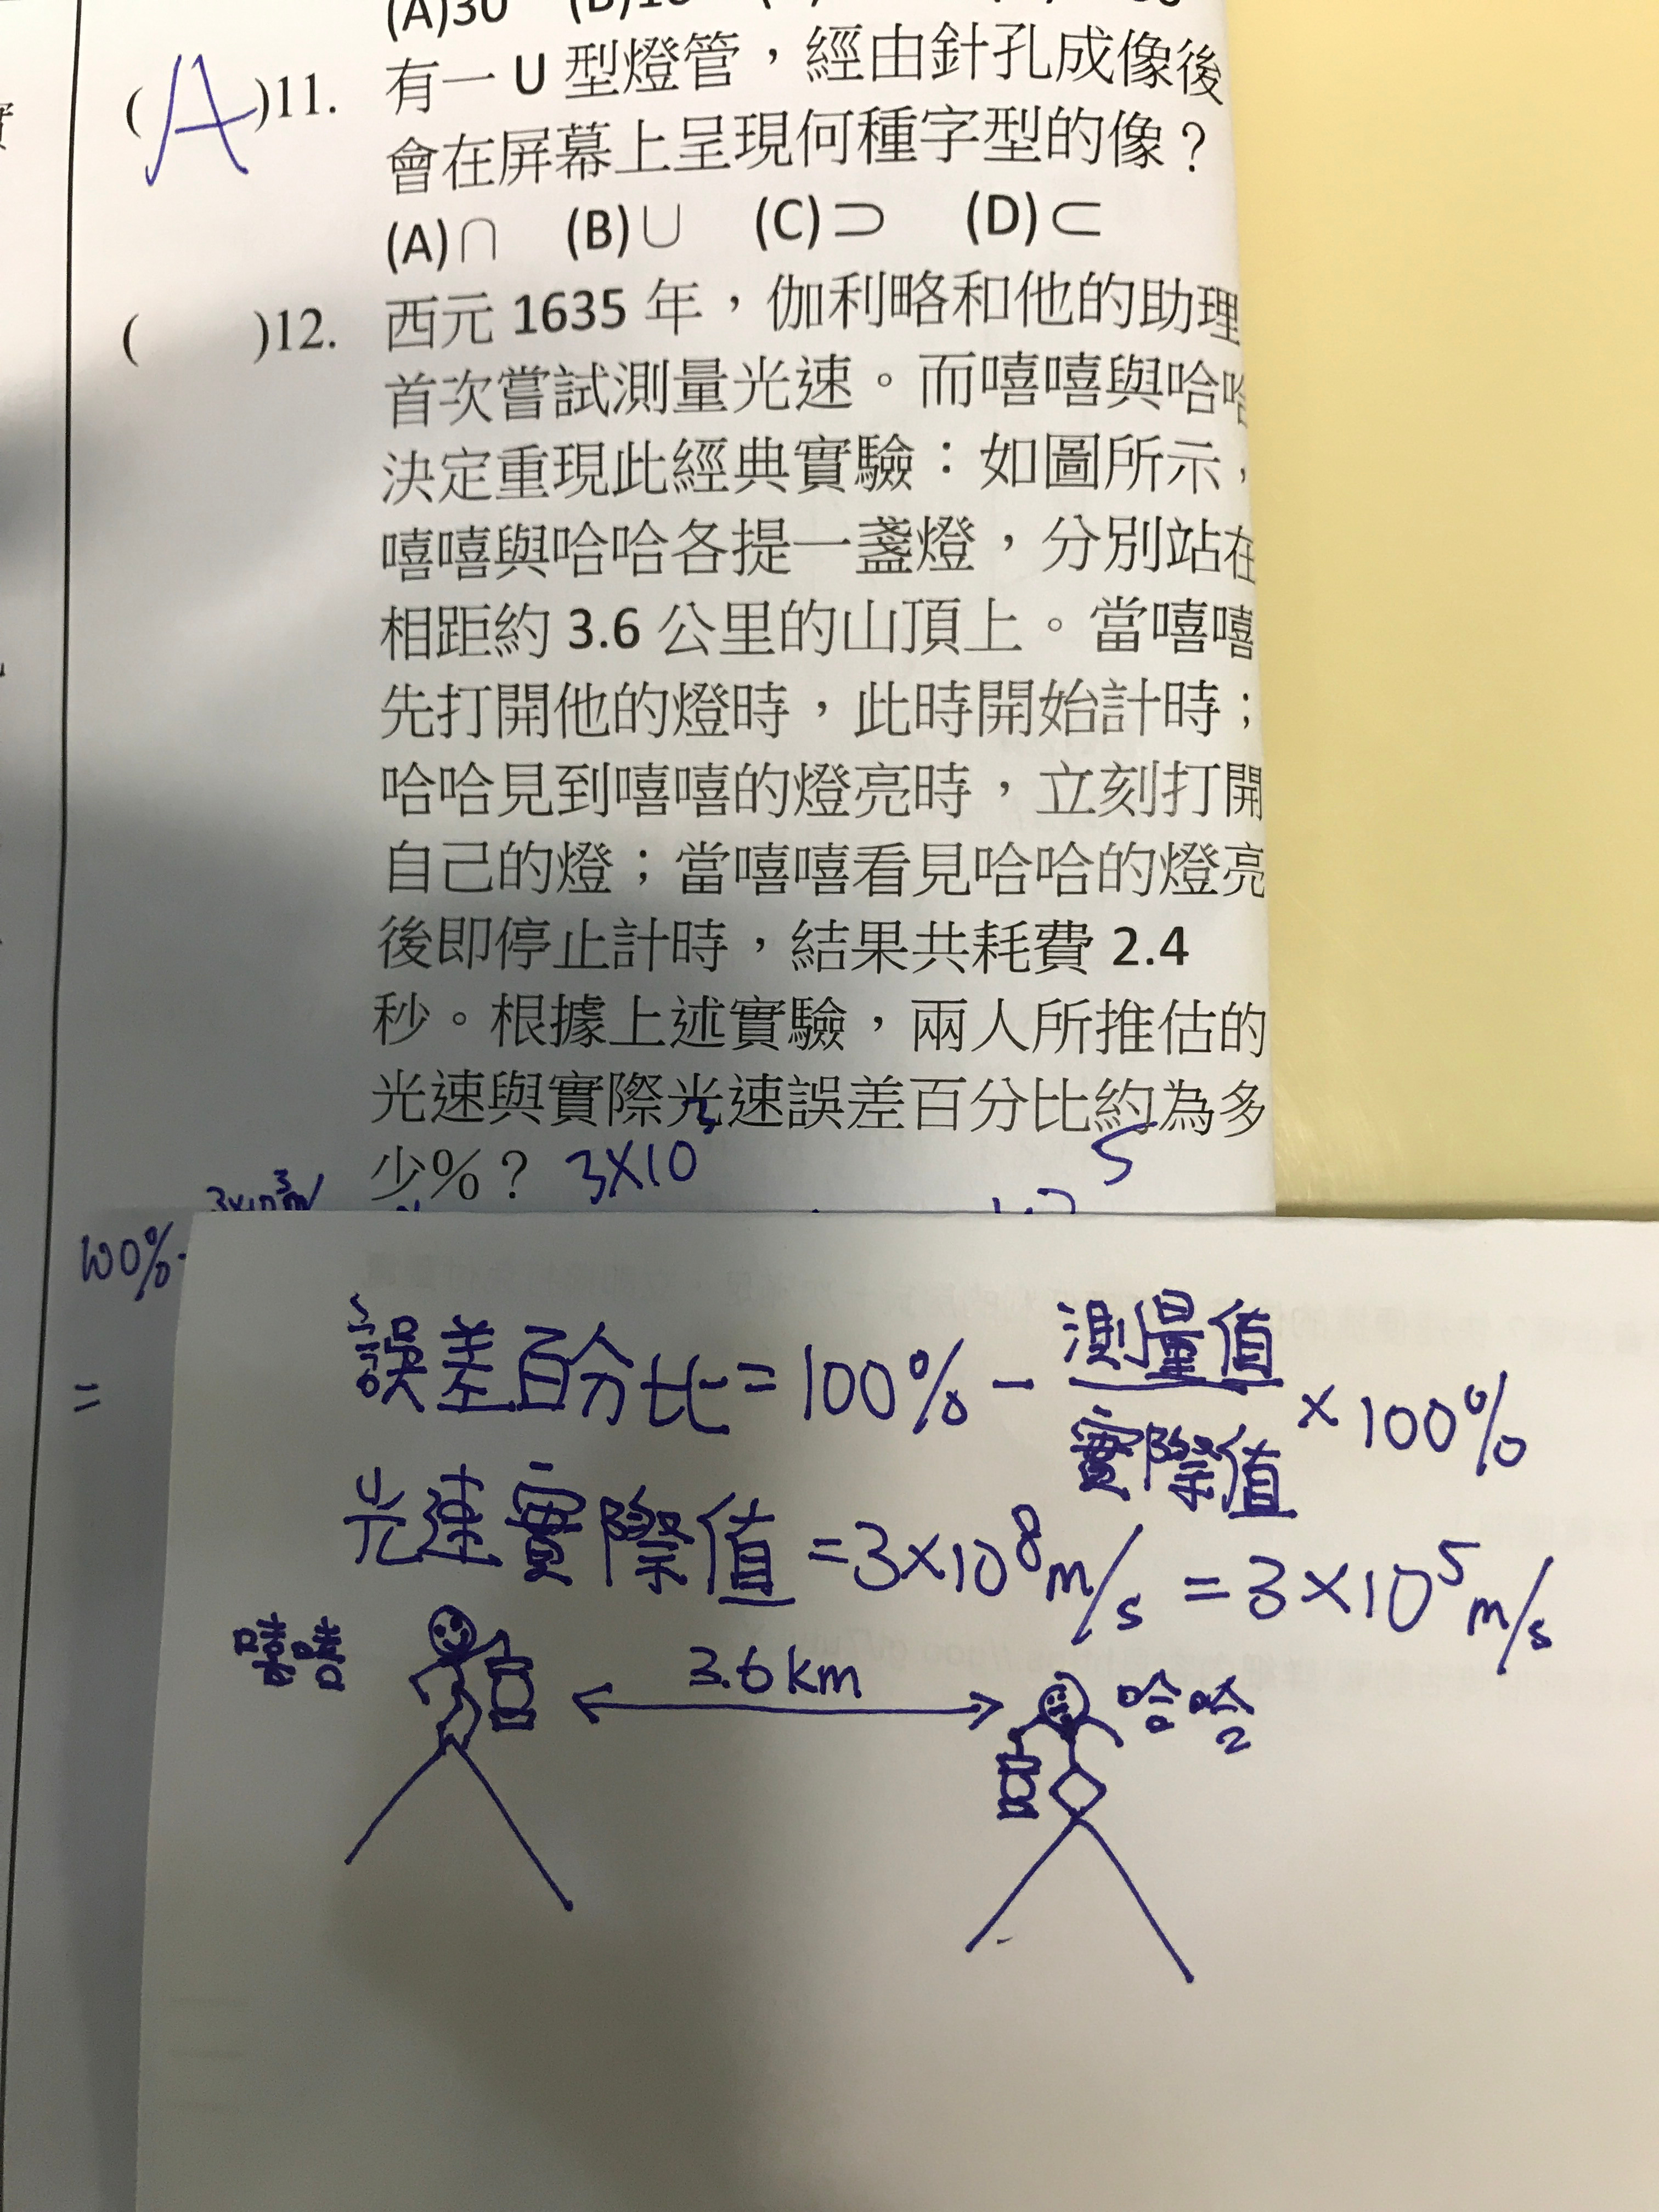 (A)30
( A )11. 有一 U 型燈管，經由針孔成像後
會在屏幕上呈現何種字型的像？
(A)∩ (B)∪ (C)⊃ (D)⊂
( )12. 西元 1635 年，伽利略和他的助理
首次嘗試測量光速。而嘻嘻與哈哈
決定重現此經典實驗：如圖所示，
嘻嘻與哈哈各提一盞燈，分別站在
相距約 3.6 公里的山頂上。當嘻嘻
先打開他的燈時，此時開始計時；
哈哈見到嘻嘻的燈亮時，立刻打開
自己的燈；當嘻嘻看見哈哈的燈亮
後即停止計時，結果共耗費 2.4
秒。根據上述實驗，兩人所推估的
光速與實際光速誤差百分比約為多
少%？ 3×10 5
3×10³m/
100%-
=
誤差百分比=100%-測量值/實際值×100%
光速實際值=3×10⁸m/s=3×10⁵m/s
嘻嘻 3.6km 哈哈